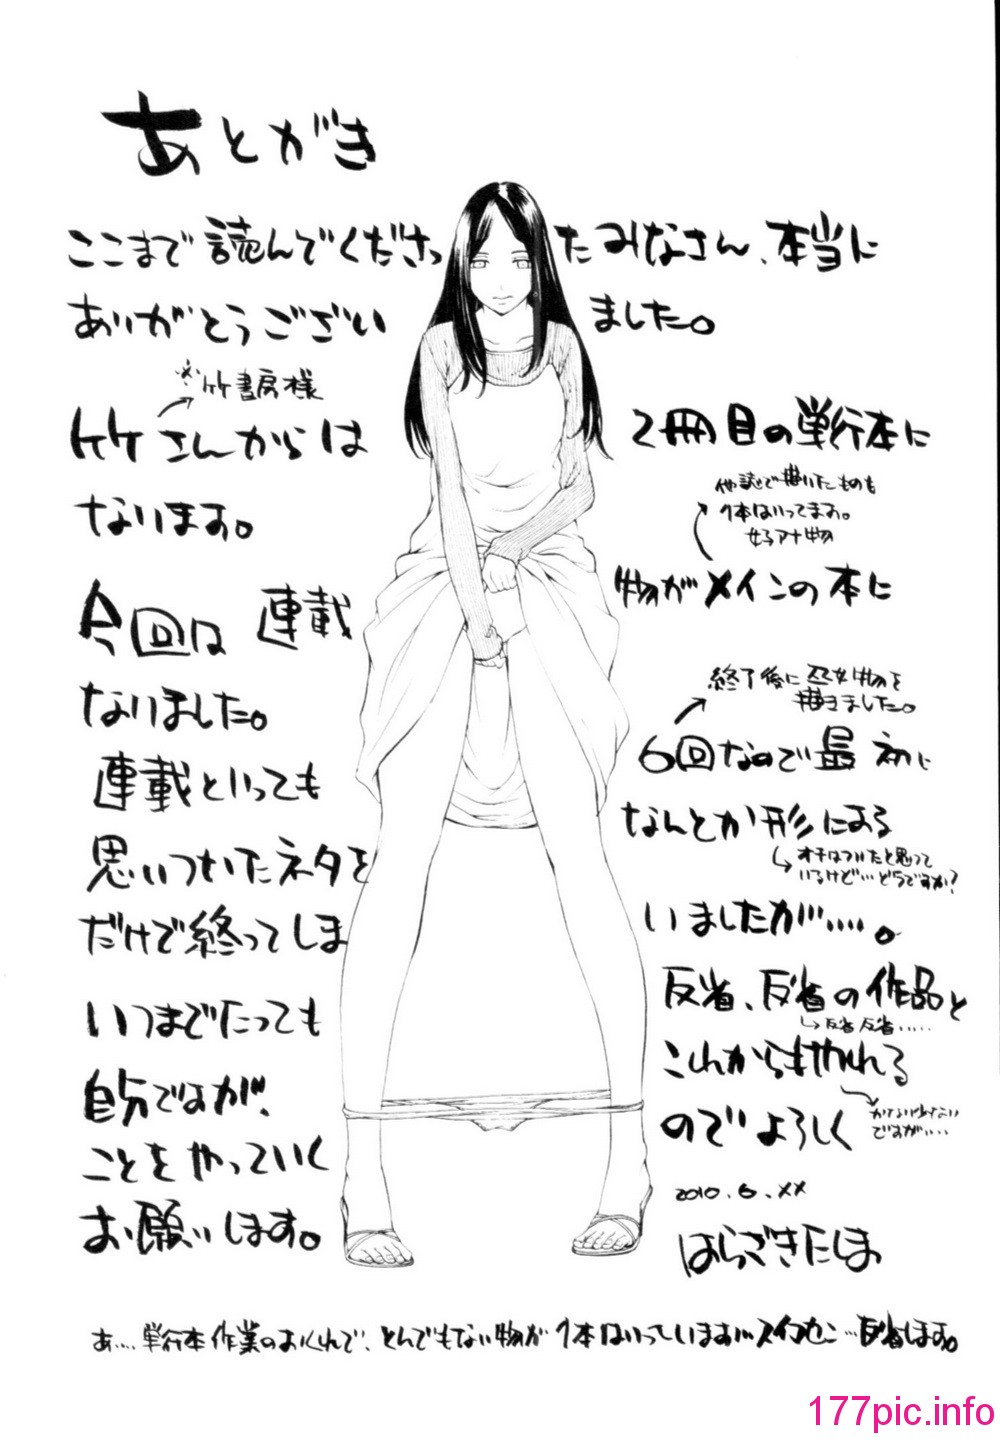 あとがき
ここまで読んでくださったみなさん、本当に
ありがとうございました。
※竹書房様
竹さんからは2冊目の単行本に
なります。
他誌で描いたものも
1本はいってます。
女子アナ物
今回は連載物がメインの本に
なりました。
終了後に巫女物を
描きました。
連載といっても6回なので最初に
思いついたネタをなんとか形にある
オチはついたと思って
いるけど…どうですか?
だけで終ってしまいましたが……。
いつまでたっても反省、反省の作品と
反省反省……
自分ですが、これからもやれる
ことをやっていくのでよろしく
ですが……
お願いします。
2010.6.××
はらざきたくま
あ…、単行本作業のおくれで、とんでもない物が1本はいっています…スイマセン…反省します。
177pic.info